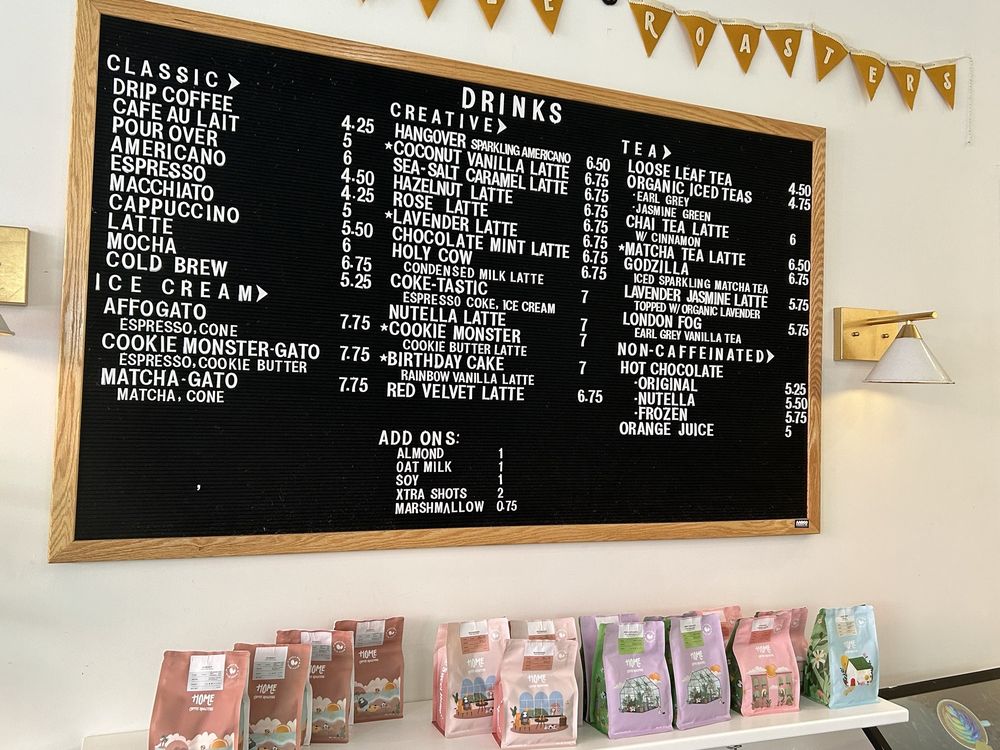 ROASTERS
DRINKS
CLASSIC
DRIP COFFEE 4.25
CAFE AU LAIT 5
POUR OVER 6
AMERICANO 4.50
ESPRESSO 4.25
MACCHIATO 5
CAPPUCCINO 5.50
LATTE 6
MOCHA 6.75
COLD BREW 5.25
ICE CREAM
AFFOGATO 7.75
ESPRESSO, CONE
COOKIE MONSTER-GATO 7.75
ESPRESSO, COOKIE BUTTER
MATCHA-GATO 7.75
MATCHA, CONE
CREATIVE
HANGOVER SPARKLING AMERICANO 6.50
*COCONUT VANILLA LATTE 6.75
SEA-SALT CARAMEL LATTE 6.75
HAZELNUT LATTE 6.75
ROSE LATTE 6.75
*LAVENDER LATTE 6.75
CHOCOLATE MINT LATTE 6.75
HOLY COW 6.75
CONDENSED MILK LATTE
COKE-TASTIC 7
ESPRESSO COKE, ICE CREAM
NUTELLA LATTE 7
*COOKIE MONSTER 7
COOKIE BUTTER LATTE
*BIRTHDAY CAKE 7
RAINBOW VANILLA LATTE
RED VELVET LATTE 6.75
ADD ONS:
ALMOND 1
OAT MILK 1
SOY 1
XTRA SHOTS 2
MARSHMALLOW 0.75
TEA
LOOSE LEAF TEA 4.50
ORGANIC ICED TEAS 4.75
·EARL GREY
·JASMINE GREEN
CHAI TEA LATTE 6
W/ CINNAMON
*MATCHA TEA LATTE 6.50
GODZILLA 6.75
ICED SPARKLING MATCHA TEA
LAVENDER JASMINE LATTE 5.75
TOPPED W/ ORGANIC LAVENDER
LONDON FOG 5.75
EARL GREY VANILLA TEA
NON-CAFFEINATED
HOT CHOCOLATE
·ORIGINAL 5.25
·NUTELLA 5.50
·FROZEN 5.75
ORANGE JUICE 5
HOME
COFFEE ROASTERS
HOME
COFFEE ROASTERS
HOME
HOME
HOME
HOME
HOME
HOME
HOME
HOME